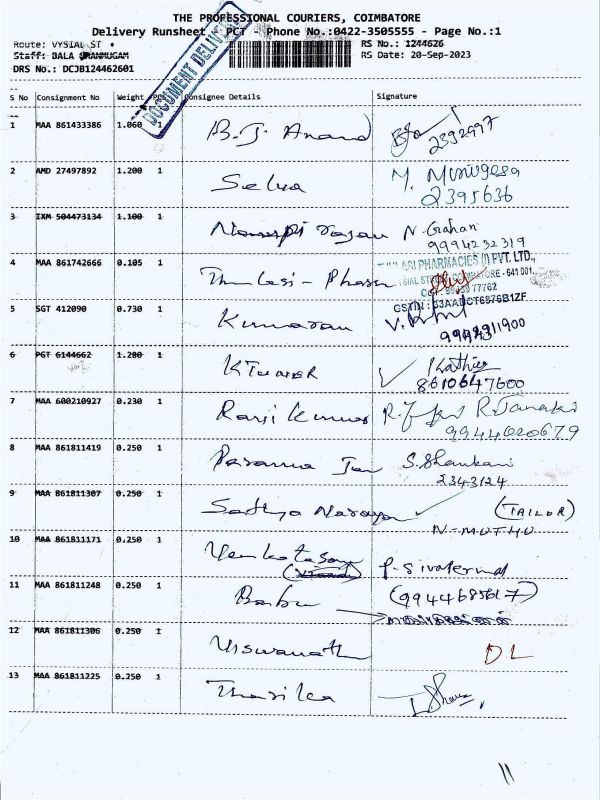 THE PROFESSIONAL COURIERS, COIMBATORE
Delivery Runsheet - PCT - Phone No.:0422-3505555 - Page No.:1
Route: VYSIAL ST
RS No.: 1244626
Staff: BALA SHANMUGAM
RS Date: 20-Sep-2023
DRS No.: DCJB124462601
DOCUMENT DELIVERY
S No Consignment No Weight PCS Consignee Details Signature
1 MAA 861433386 1.060 1 B. J. Anand 2392497
2 AMD 27497892 1.200 1 Selva M. Murugesa
2395636
3 IXM 504473134 1.100 1 N. Gahan
9994232319
4 MAA 861742666 0.105 1 Thulasi - Pharm
PHARMACIES (I) PVT. LTD.,
COIMBATORE - 641 001.
GSTIN : 33AADCT6876B1ZF
5 SGT 412090 0.730 1 Kumaran
6 PGT 6144662 1.280 1 KTUMAR Kathir
8610647600
7 MAA 600210927 0.230 1 Ranji Kumar R. Janaki
9944020679
8 MAA 861811419 0.250 1 S. Shankari
2343124
9 MAA 861811307 0.250 1 Sathya Narayan (TAILOR)
N-MUTHU
10 MAA 861811171 0.250 1 Venkatesan P. Sivaperumal
11 MAA 861811248 0.250 1 Babu (9944685617)
12 MAA 861811306 0.250 1 Viswanath DL
13 MAA 861811225 0.250 1 Tharika
11